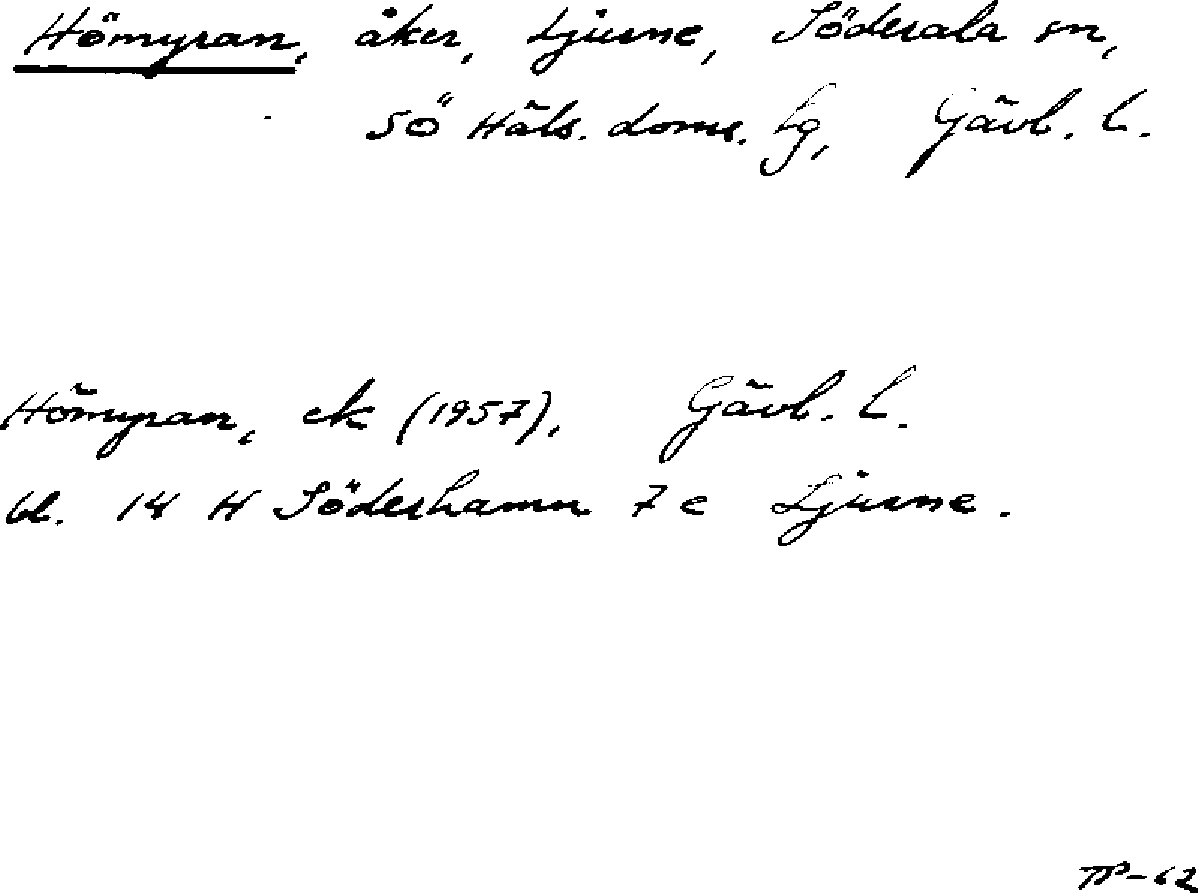 Hömyran, åker, Ljusne, Söderala sn,
SÖ Häls. doms. lg, Gävl. l.
Hömyran, ek (1957), Gävl. l.
bl. 14 H Söderhamn 7 e Ljusne.
TP-62